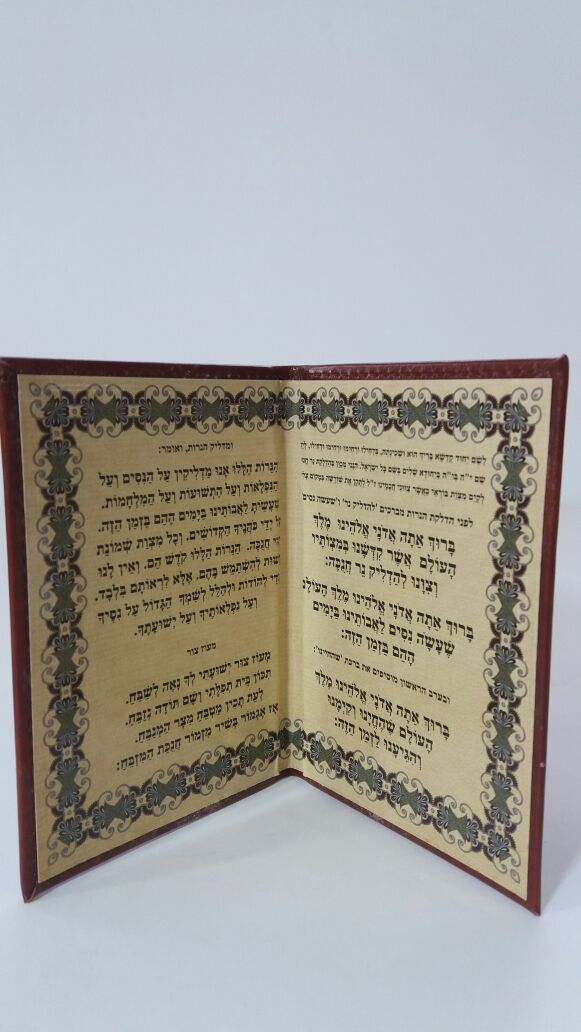 לשם יחוד קודשא בריך הוא ושכינתה, בדחילו ורחימו ורחימו ודחילו, ליחד
שם י״ה בו״ה ביחודא שלים בשם כל ישראל. הנני מכון בהדלקת נר חנוכה
לקיים מצות בוראי כאשר צווני חכמינו ז״ל לתקן את שורשה במקום עליון
לפני הדלקת הנרות מברכים ׳להדליק נר׳ ו׳שעשה נסים׳
בָּרוּךְ אַתָּה אֲדֹנָי אֱלֹהֵינוּ מֶלֶךְ
הָעוֹלָם אֲשֶׁר קִדְּשָׁנוּ בְּמִצְוֹתָיו
וְצִוָּנוּ לְהַדְלִיק נֵר חֲנֻכָּה:
בָּרוּךְ אַתָּה אֲדֹנָי אֱלֹהֵינוּ מֶלֶךְ הָעוֹלָם
שֶׁעָשָׂה נִסִּים לַאֲבוֹתֵינוּ בַּיָּמִים
הָהֵם בַּזְּמַן הַזֶּה:
ובערב הראשון מוסיפים את ברכת ׳שהחיינו׳:
בָּרוּךְ אַתָּה אֲדֹנָי אֱלֹהֵינוּ מֶלֶךְ
הָעוֹלָם שֶׁהֶחֱיָנוּ וְקִיְּמָנוּ
וְהִגִּיעָנוּ לַזְּמַן הַזֶּה:
ומדליק הנרות, ואומר:
הַנֵּרוֹת הַלָּלוּ אָנוּ מַדְלִיקִין עַל הַנִּסִּים וְעַל
הַנִּפְלָאוֹת וְעַל הַתְּשׁוּעוֹת וְעַל הַמִּלְחָמוֹת.
שֶׁעָשִׂיתָ לַאֲבוֹתֵינוּ בַּיָּמִים הָהֵם בַּזְּמַן הַזֶּה.
עַל יְדֵי כֹּהֲנֶיךָ הַקְּדוֹשִׁים. וְכָל מִצְוַת שְׁמוֹנַת
יְמֵי חֲנֻכָּה. הַנֵּרוֹת הַלָּלוּ קֹדֶשׁ הֵם. וְאֵין לָנוּ
רְשׁוּת לְהִשְׁתַּמֵּשׁ בָּהֶם. אֶלָּא לִרְאוֹתָם בִּלְבָד.
כְּדֵי לְהוֹדוֹת וּלְהַלֵּל לְשִׁמְךָ הַגָּדוֹל עַל נִסֶּיךָ
וְעַל נִפְלְאוֹתֶיךָ וְעַל יְשׁוּעָתֶךָ.
מעוז צור
מָעוֹז צוּר יְשׁוּעָתִי לְךָ נָאֶה לְשַׁבֵּחַ.
תִּכּוֹן בֵּית תְּפִלָּתִי וְשָׁם תּוֹדָה נְזַבֵּחַ.
לְעֵת תָּכִין מַטְבֵּחַ מִצַּר הַמְנַבֵּחַ.
אָז אֶגְמוֹר בְּשִׁיר מִזְמוֹר חֲנֻכַּת הַמִּזְבֵּחַ: